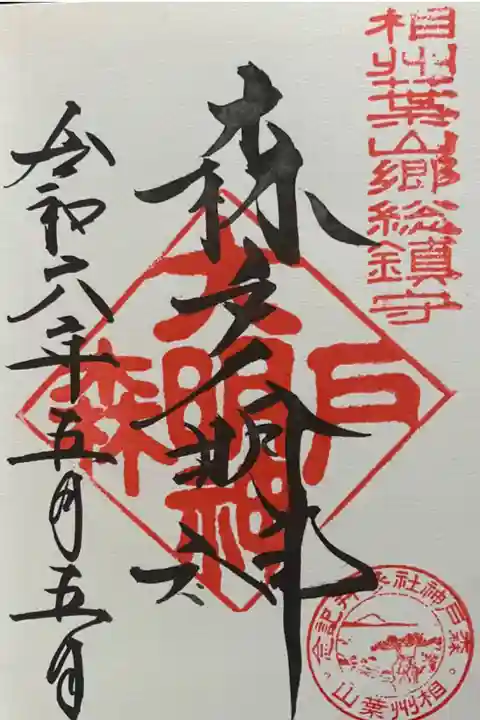 相州葉山郷総鎮守
森
大明神
森戸
令和六年五月五日
森戸神社参拝記念。
相州葉山。